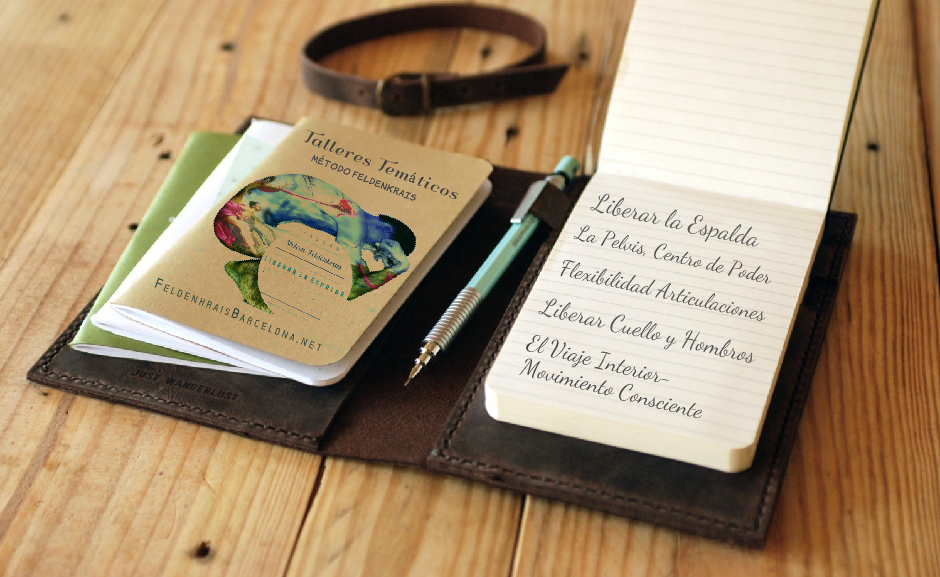 Talleres Temáticos
MÉTODO FELDENKRAIS
TALLER
LIBERAR LA ESPALDA
FELDENKRAISBARCELONA.NET
JUST WANDERLUST
Liberar la Espalda
La Pelvis, Centro de Poder
Flexibilidad Articulaciones
Liberar Cuello y Hombros
El Viaje Interior-
Movimiento Consciente